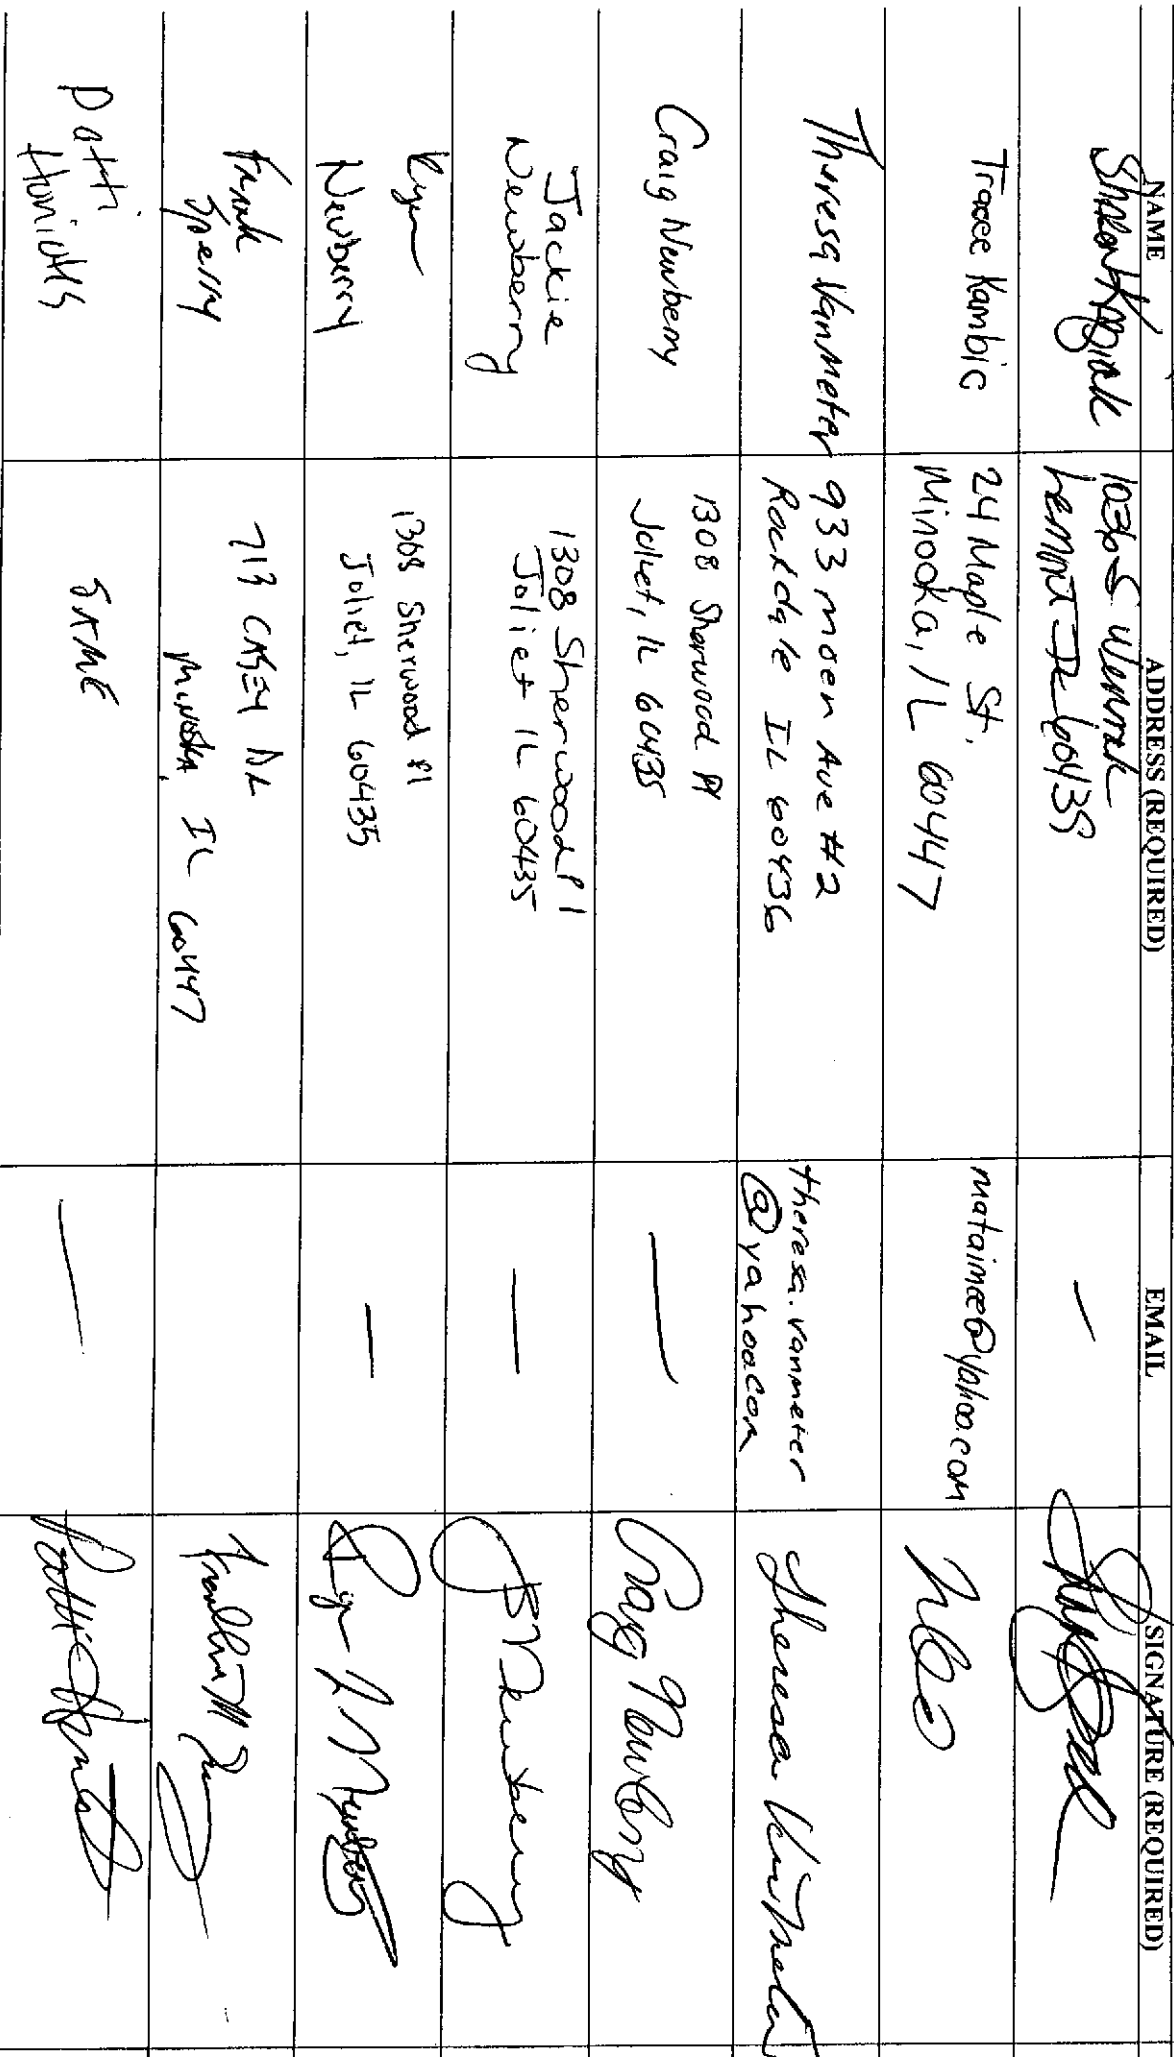 NAME ADDRESS (REQUIRED) EMAIL SIGNATURE (REQUIRED)
Sharon
Lemont IL 60439
Tracee Kambic
24 Maple St.
Minooka, IL 60447
mataimee@yahoo.com
Theresa VanMeter
933 moen Ave #2
Rockdale IL 60436
theresa.vanmeter
@yahoo.com
Theresa VanMeter
Craig Newberry
1308 Sherwood Pl
Joliet, IL 60435
—
Craig Newberry
Jackie
Newberry
1308 Sherwood Pl
Joliet IL 60435
—
Newberry
Ryan
Newberry
1308 Sherwood Pl
Joliet, IL 60435
—
Ryan Newberry
Frank
Sperry
713 CASEY DR
MINOOKA, IL 60447
Franklin M
Patti
SAME
—